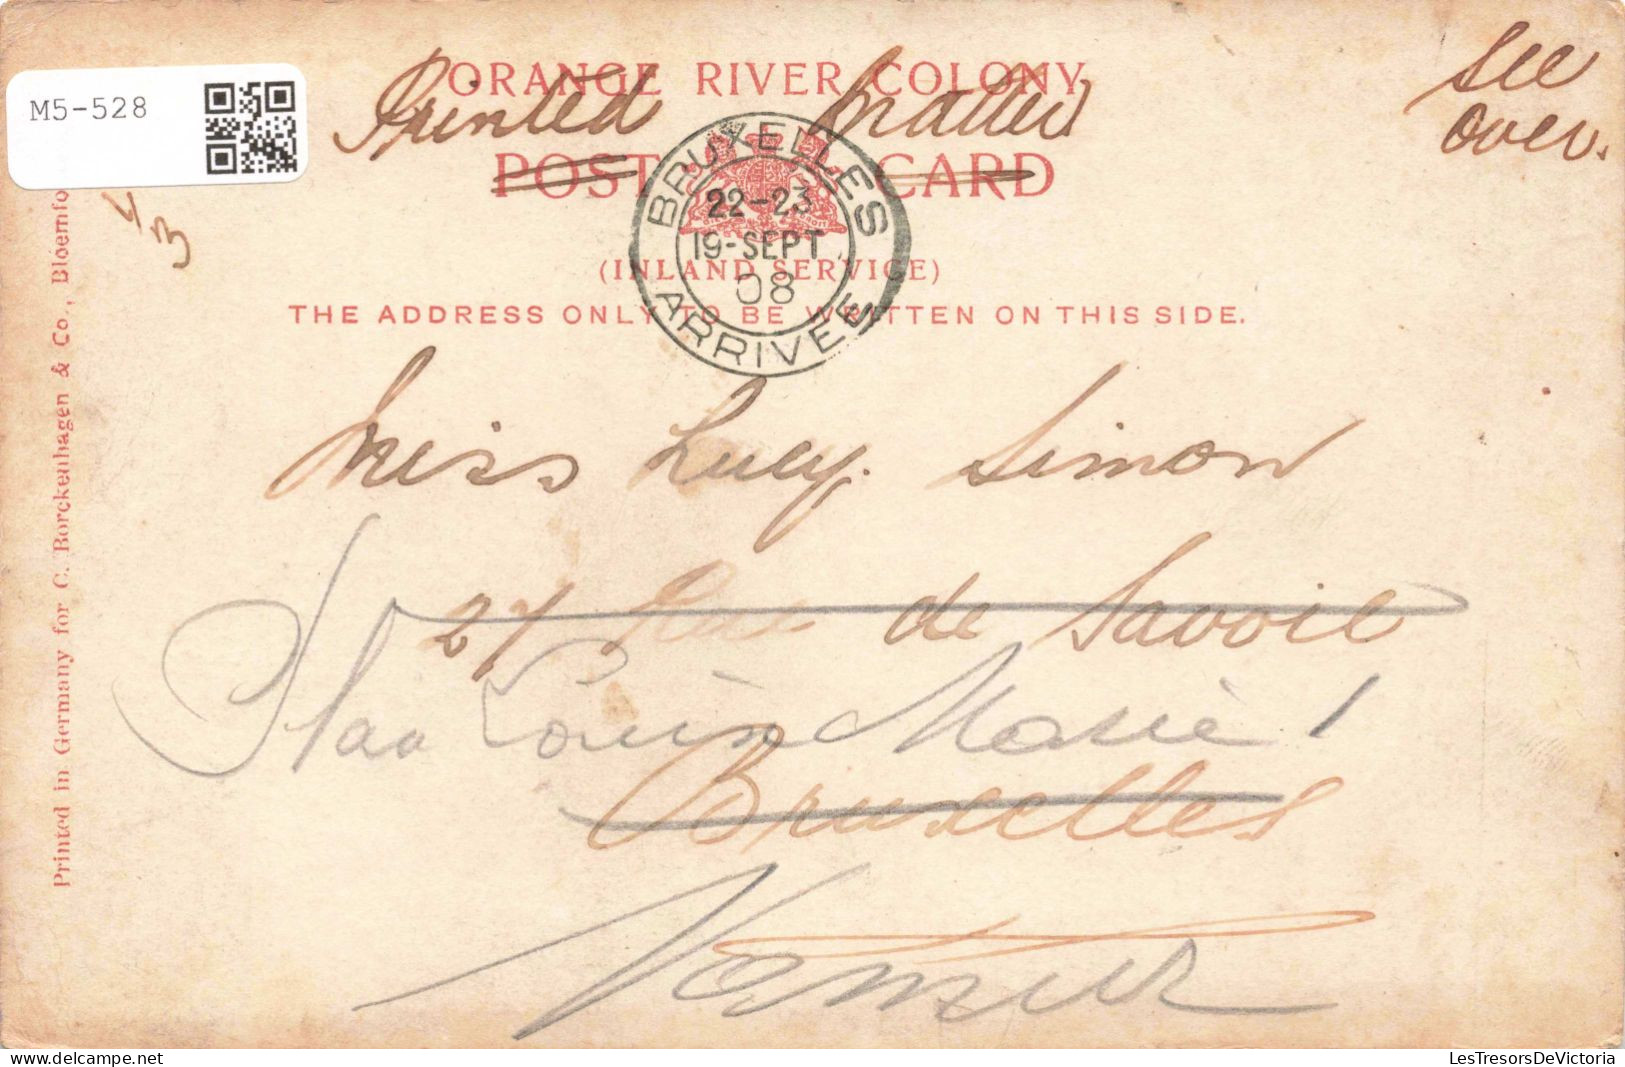 M5-528
ORANGE RIVER COLONY
Printed Matter
See
over.
POST CARD
(INLAND SERVICE)
THE ADDRESS ONLY TO BE WRITTEN ON THIS SIDE.
BRUXELLES
22-23
19-SEPT
08
ARRIVÉE
Miss Lucy. Simon
27 Rue de Savoie
Marie
Bruxelles
Namur
Printed in Germany for C. Borckenhagen & Co., Bloemfo
LesTresorsDeVictoria